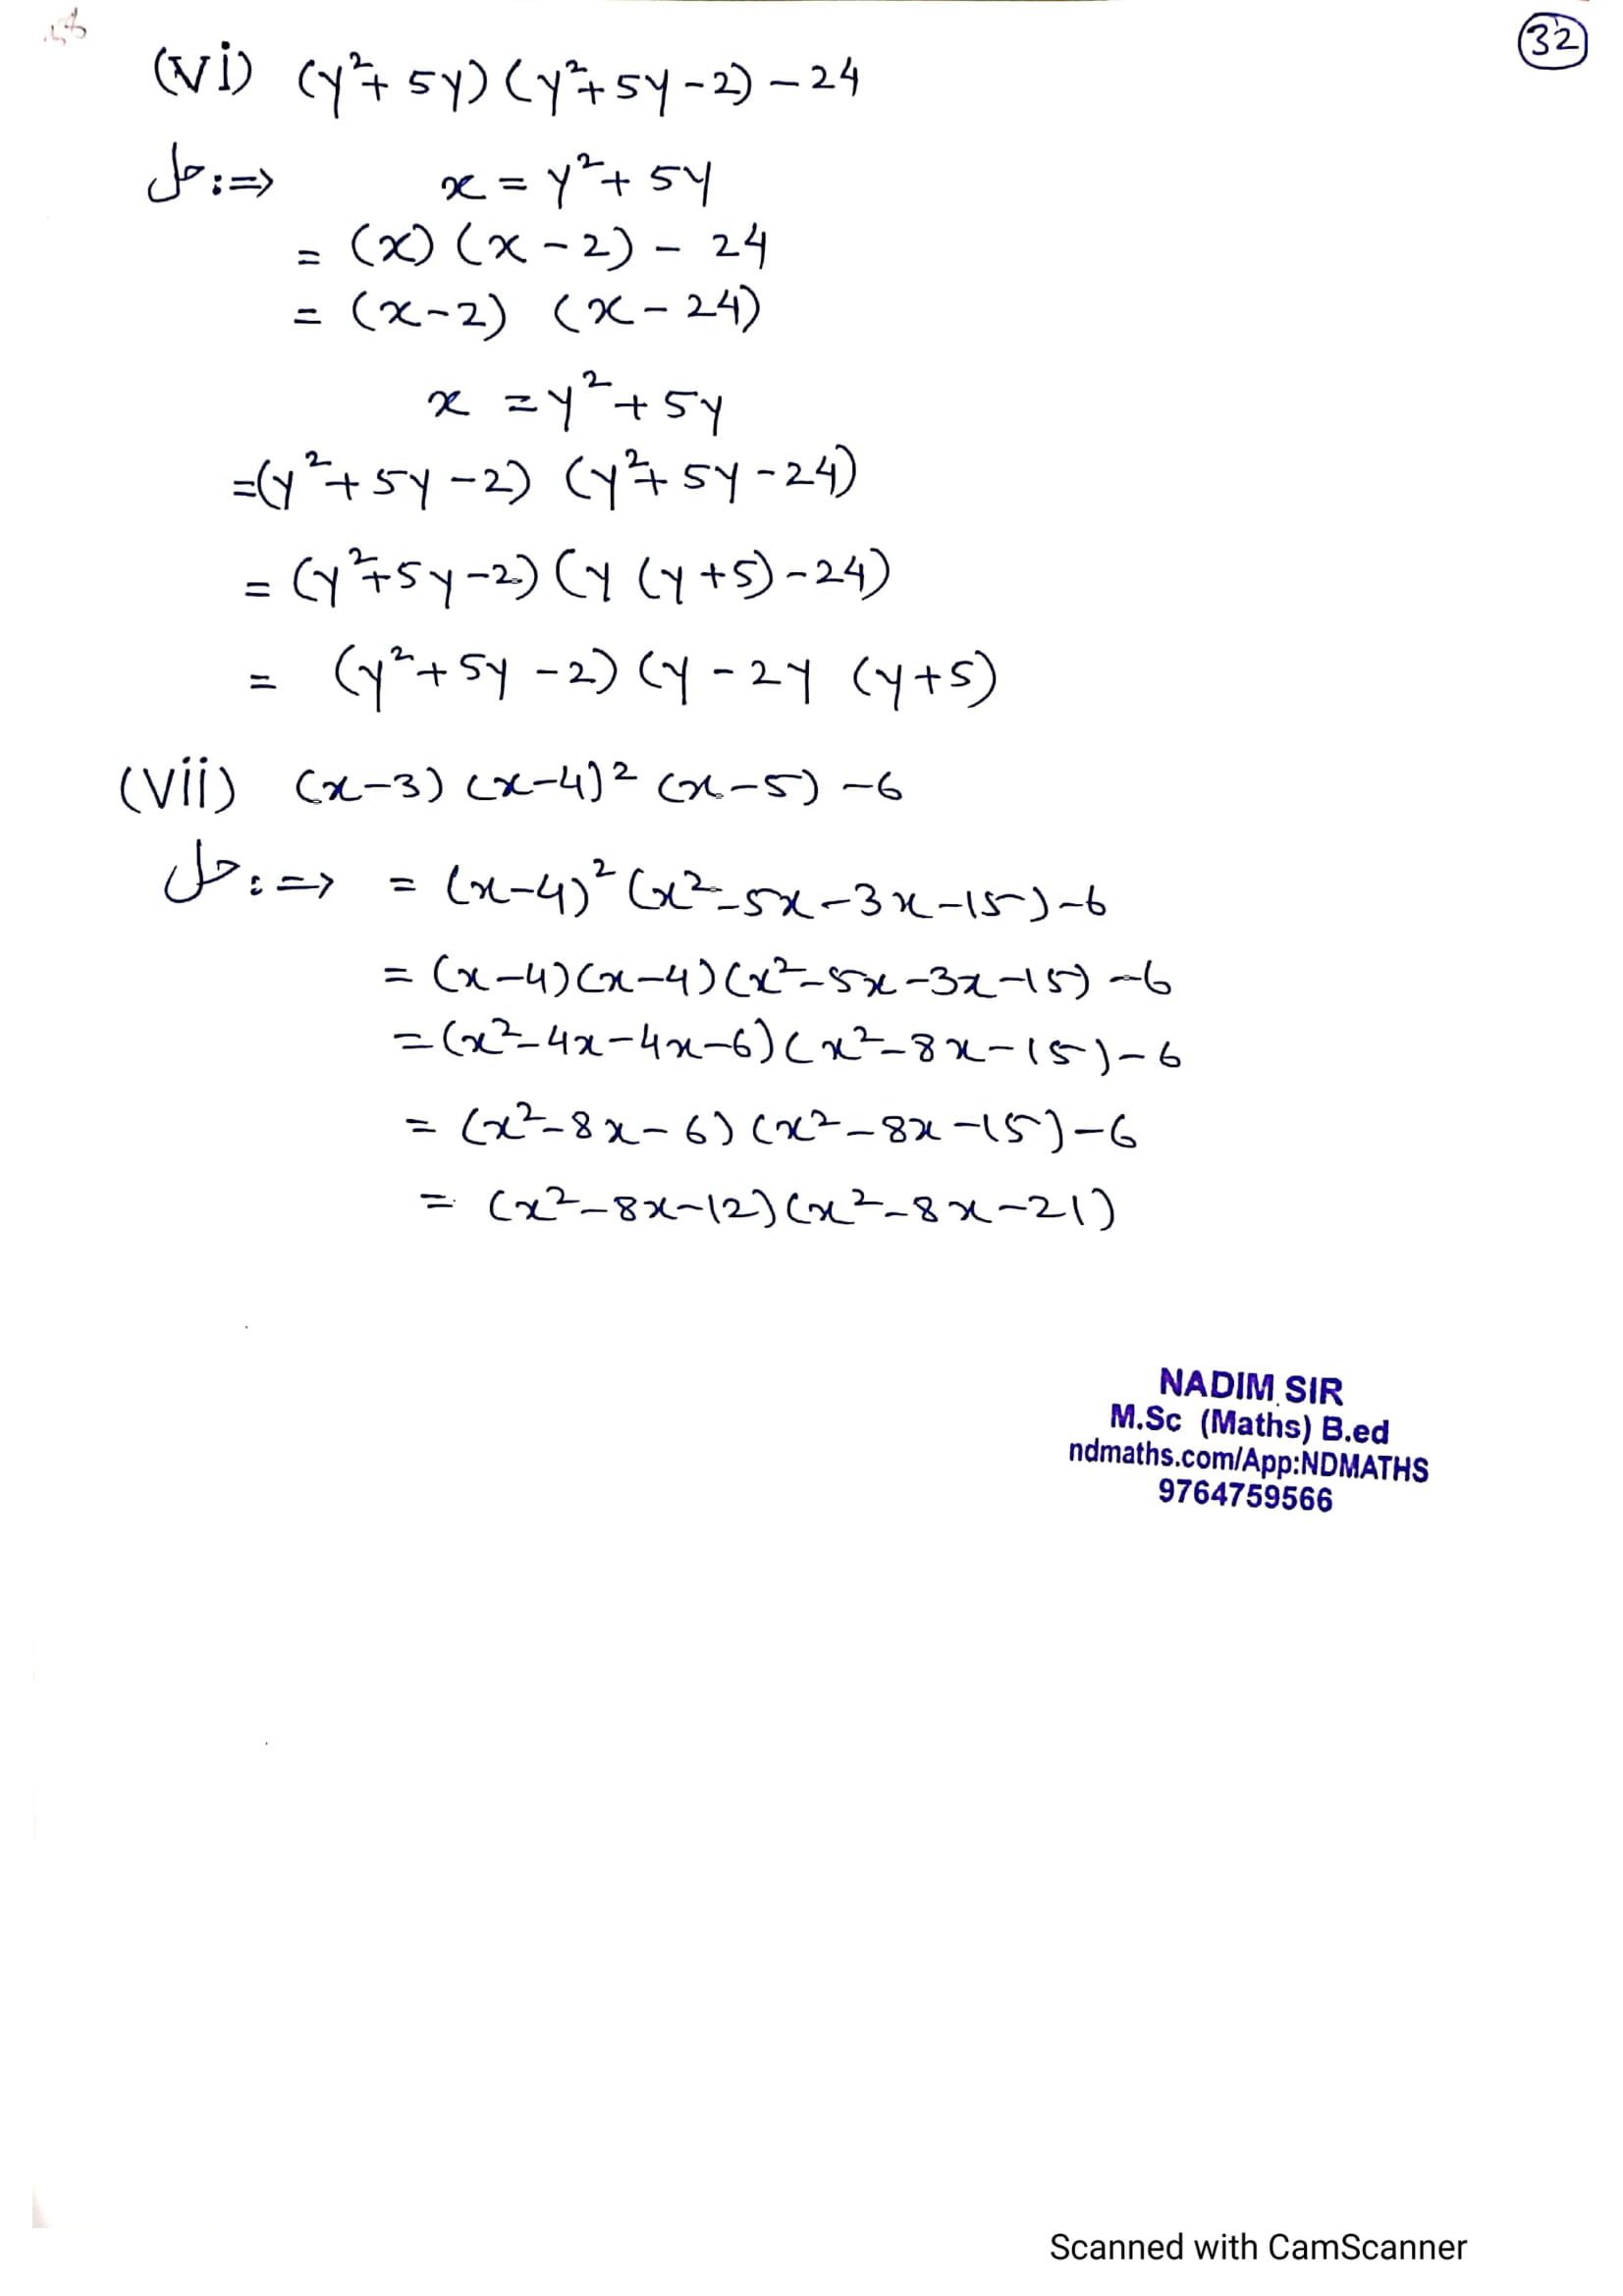 32
(vi) (y²+5y)(y²+5y-2)-24
حل :=> x = y²+5y
= (x)(x-2)-24
= (x-2) (x-24)
x = y²+5y
=(y²+5y-2) (y²+5y-24)
= (y²+5y-2)(y(y+5)-24)
= (y²+5y-2)(y-2y (y+5)
(Vii) (x-3)(x-4)²(x-5)-6
حل :=> = (x-4)²(x²-5x-3x-15)-6
= (x-4)(x-4)(x²-5x-3x-15)-6
= (x²-4x-4x-6)(x²-8x-15)-6
= (x²-8x-6)(x²-8x-15)-6
= (x²-8x-12)(x²-8x-21)
NADIM SIR
M.Sc (Maths) B.ed
ndmaths.com/App:NDMATHS
9764759566
Scanned with CamScanner